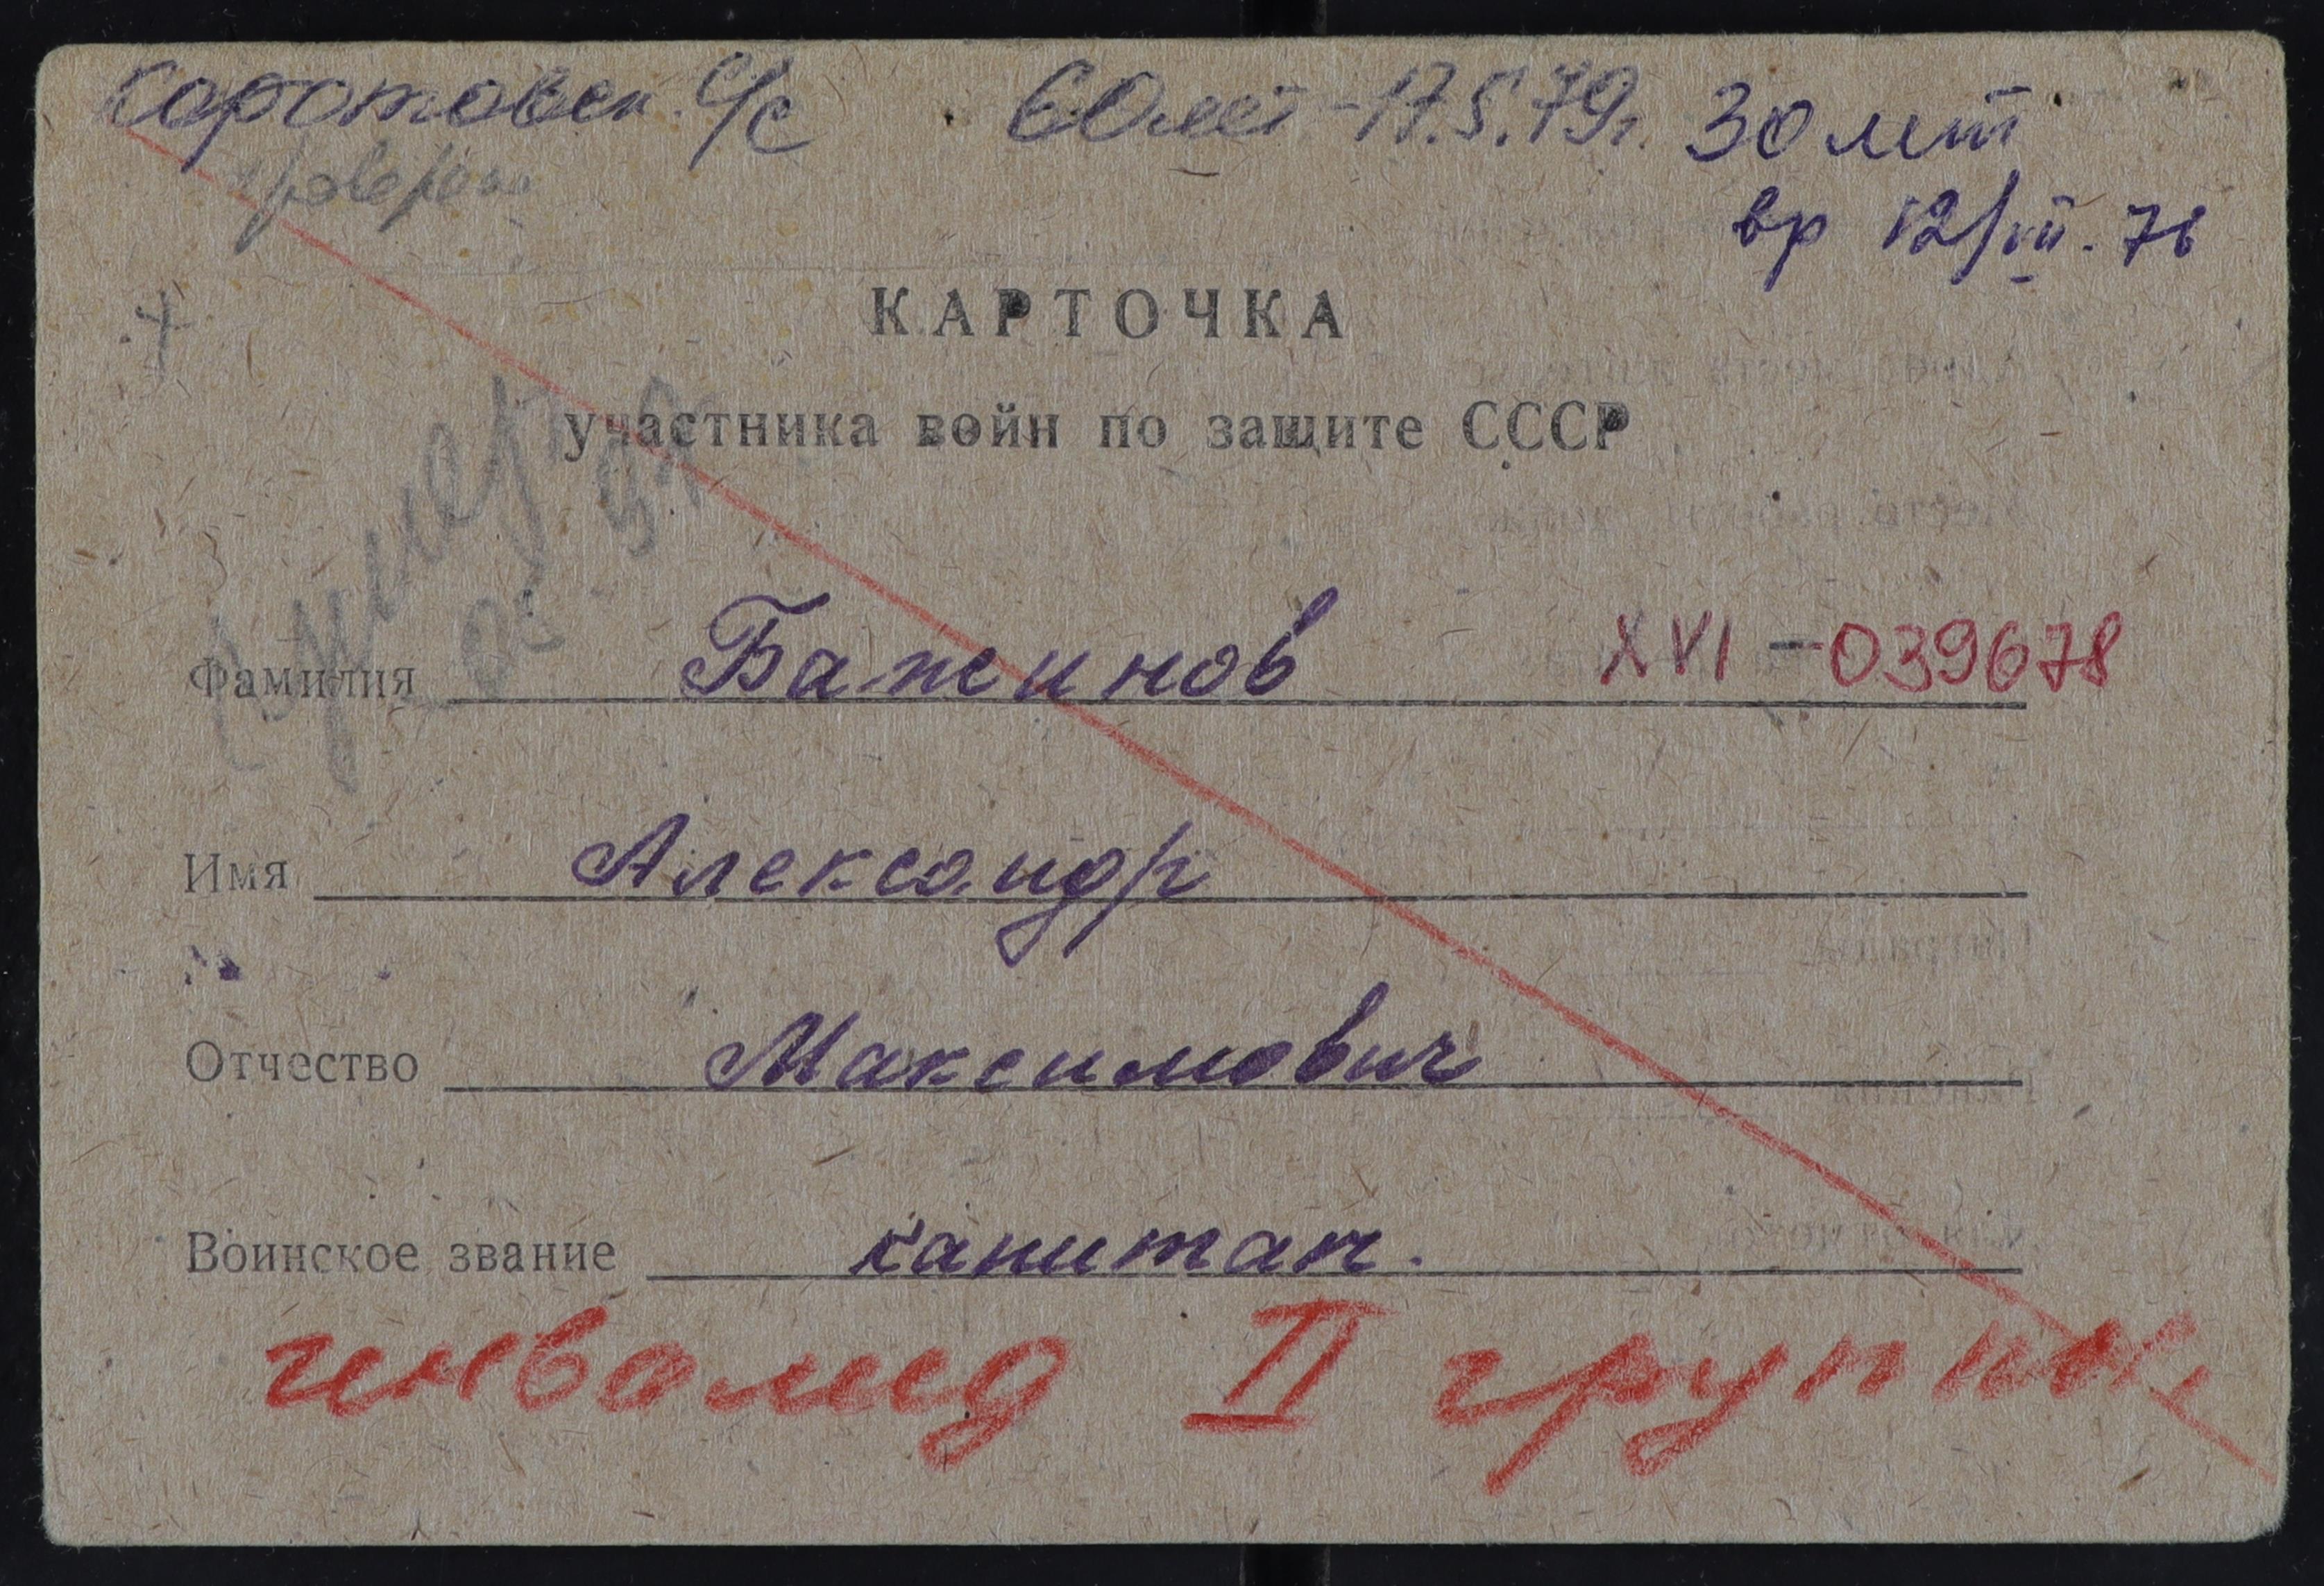 Саротовск. с/с 60 лет - 17.5.79г. 30 лет
проверено вр 12/VII. 76
КАРТОЧКА
участника войн по защите СССР
умер
Фамилия Бажинов XVI - 039678
Имя Александр
Отчество Максимович
Воинское звание капитан.
инвалид II группы